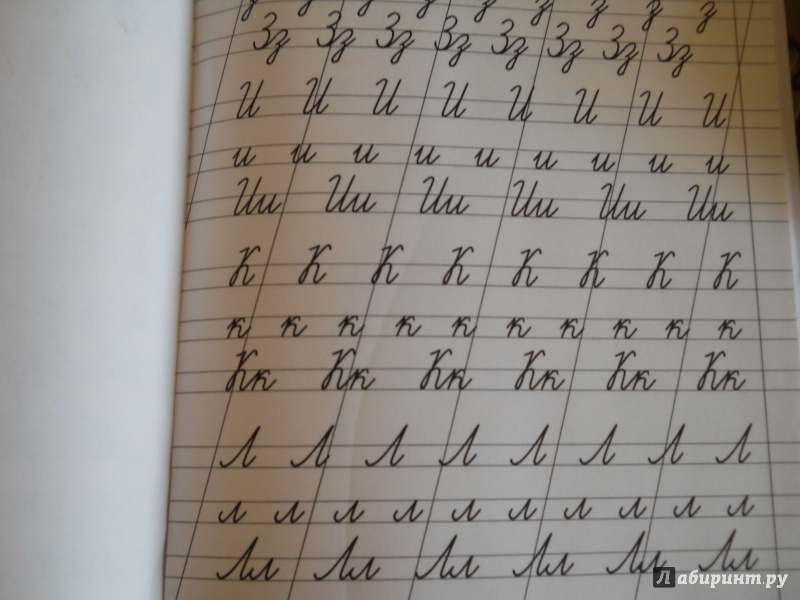 з з з з з з з з з
Зз Зз Зз Зз Зз Зз Зз Зз
И И И И И И И И
и и и и и и и и и
Ии Ии Ии Ии Ии Ии
К К К К К К К К
к к к к к к к к к к
Кк Кк Кк Кк Кк Кк
Л Л Л Л Л Л Л Л
л л л л л л л л л л
Лл Лл Лл Лл Лл Лл
Лабиринт.ру